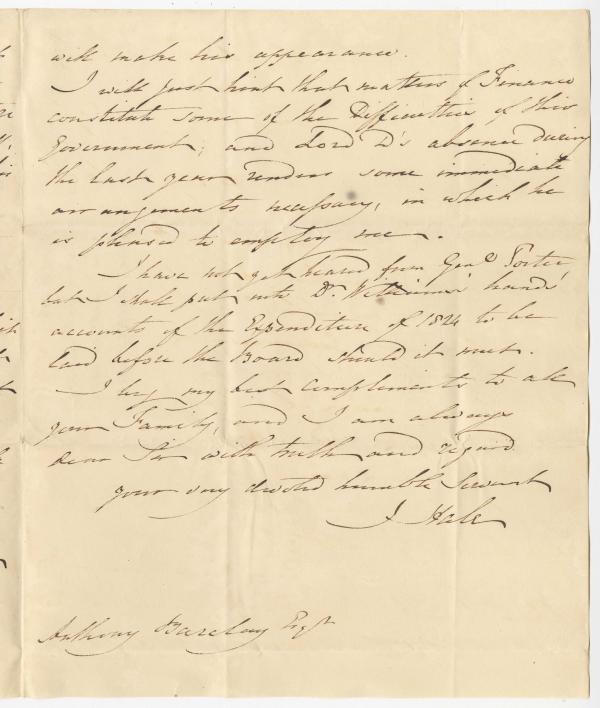 will make his appearance.
I will just hint that matters of Finance
constitute some of the Difficulties of this
Government; and Lord D's absence during
the last year renders some immediate
arrangements necessary, in which he
is pleased to employ me.
I have not yet heard from Genl Porter
but I shall put into Dr. Williams' hands
accounts of the Expenditure of 1824 to be
laid before the Board should it meet.
I beg my best compliments to all
your Family, and I am always
Dear Sir with truth and regard
your very devoted humble Servant
J Hale
Anthony Barclay Esqr